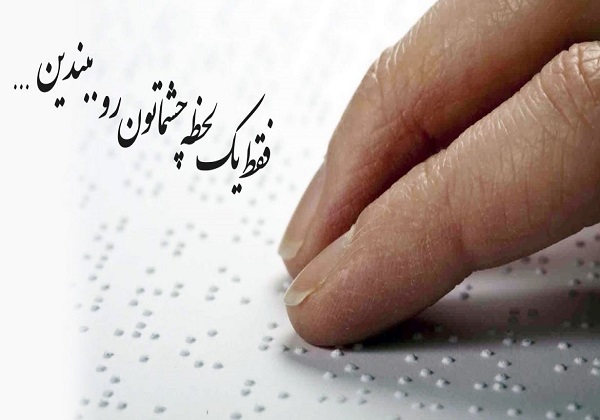 فقط یک لحظه چشماتون رو ببندین ...